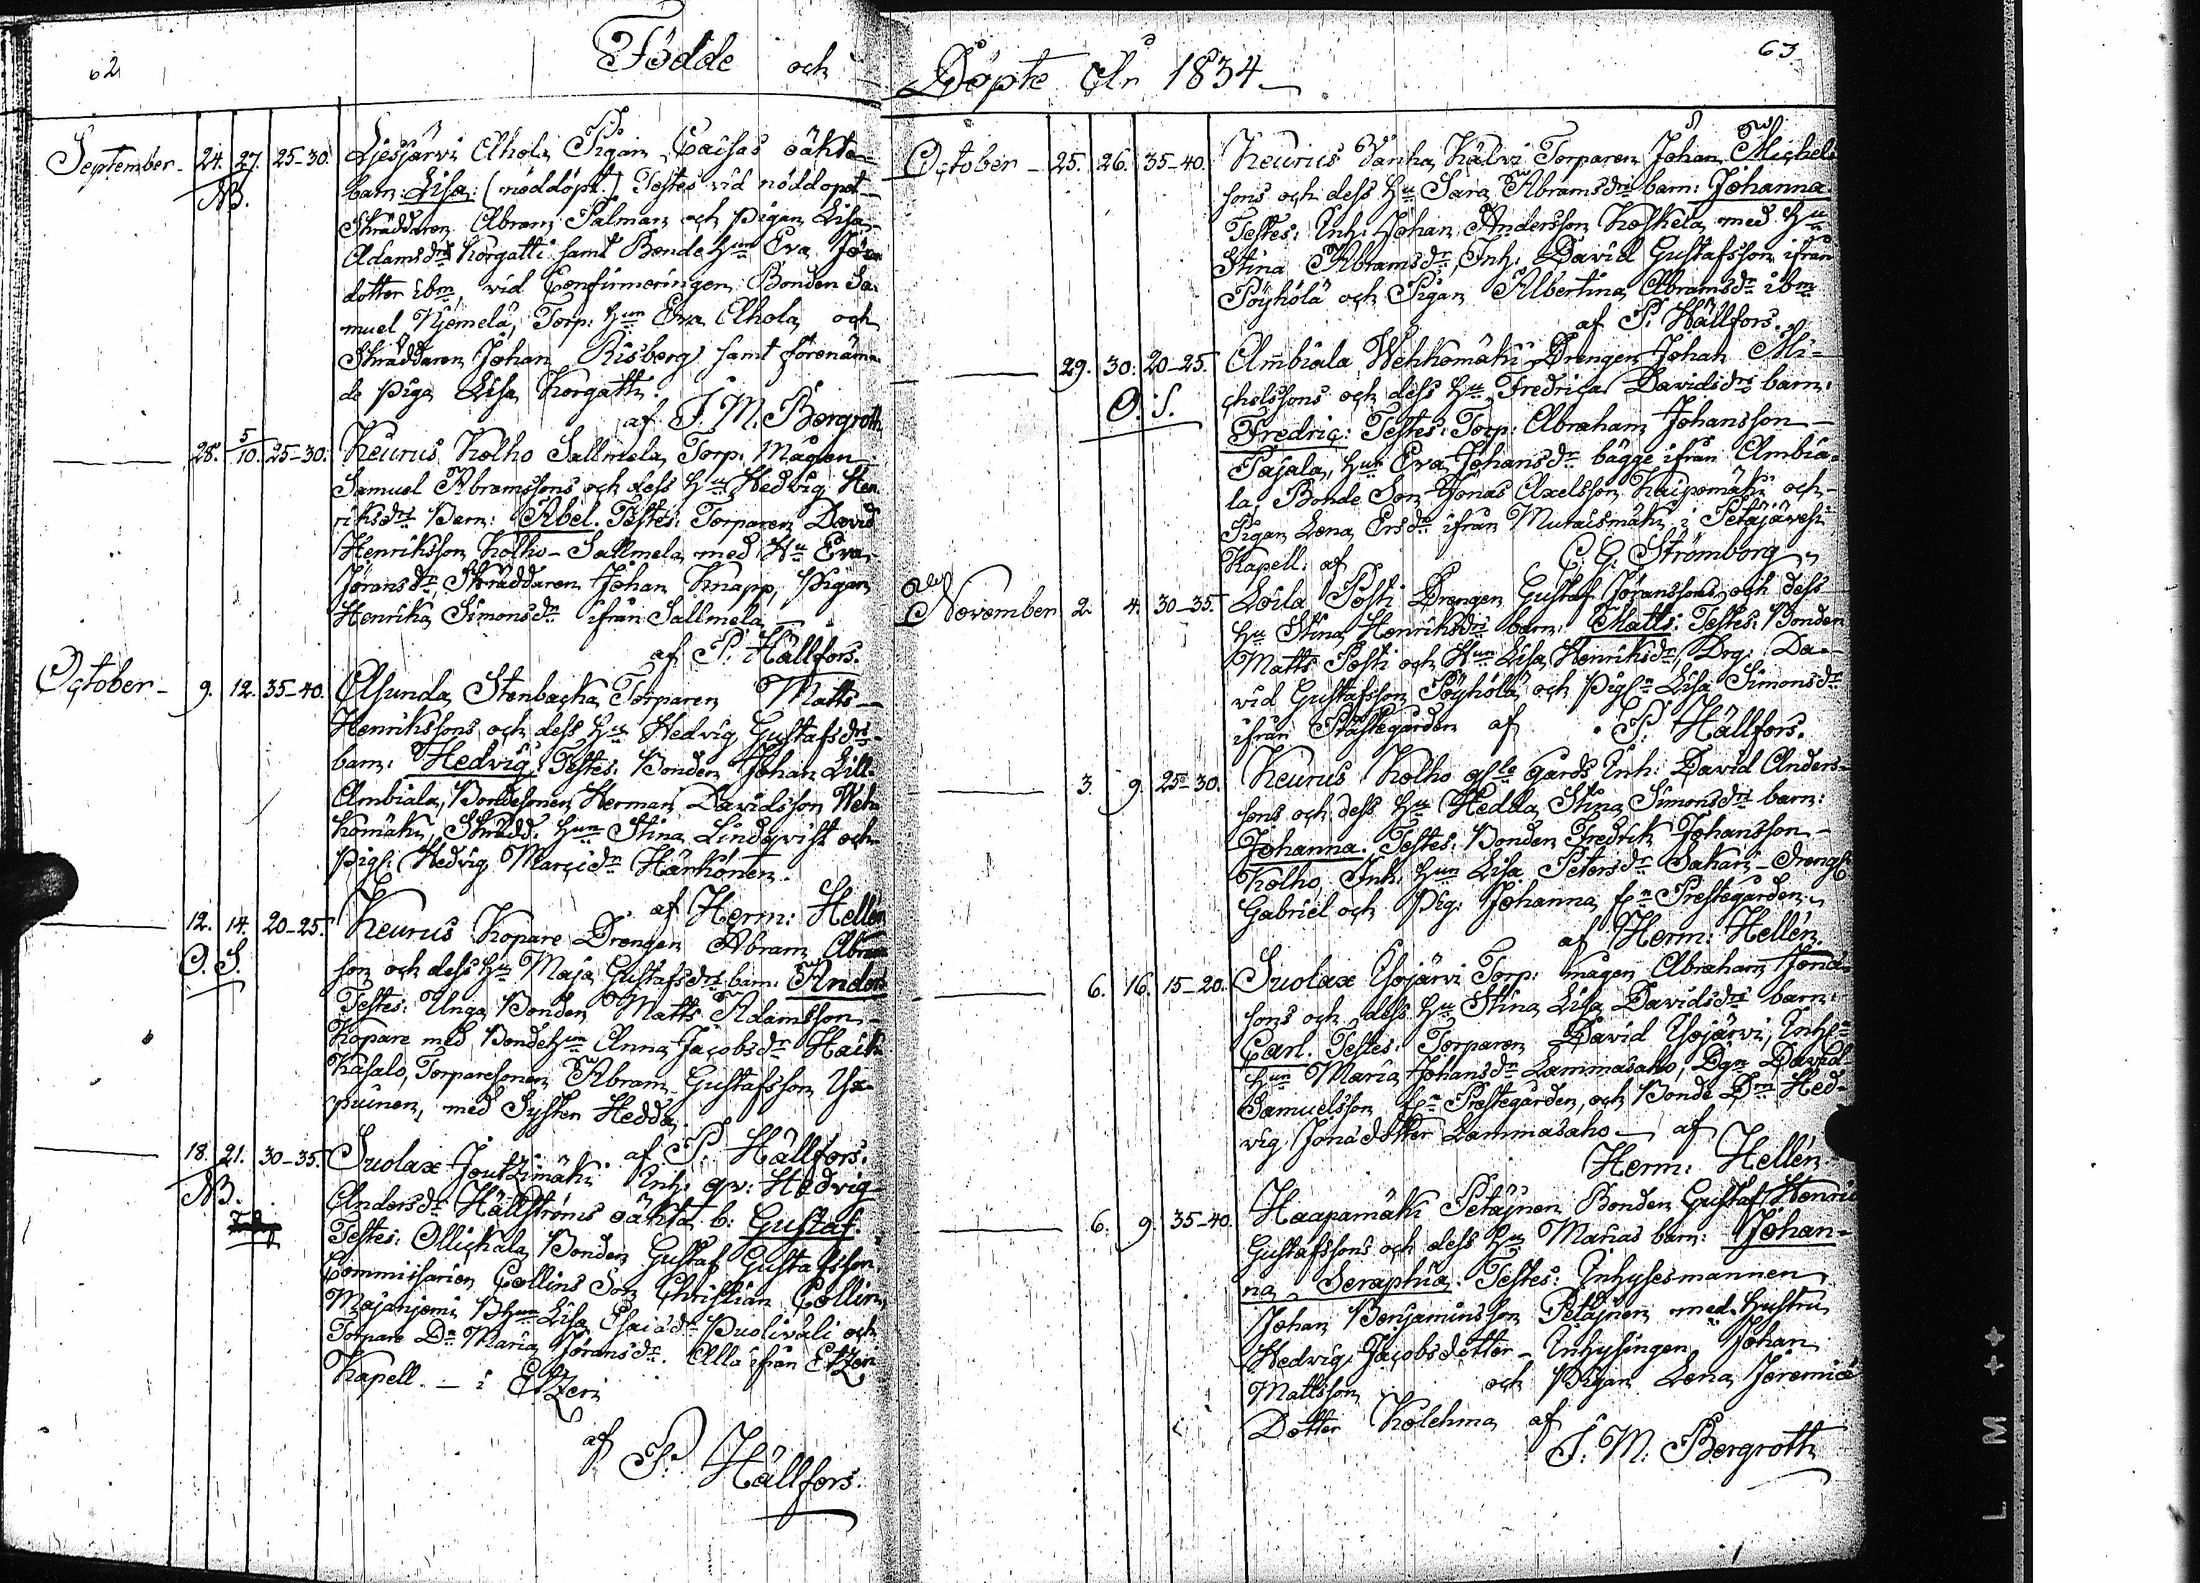 62
Födde och
September - 24. 27. 25-30. Liesjärvi Ahola Pigan Caisas oäkta
NB. barn: Lisa: (nöddöpt.) Testes vid nöddopet
Skräddaren Abram Palman och pigan Lisa
Adamsdr Korgatti samt Bonde Hun Eva Jöran
dotter ibm, vid Confirmeringen Bonden Sa-
muel Njemelä, Torp: Hun Eva Ahola och
Skräddaren Johan Risberg samt förenämn
de piga Lisa Korgatti.
af F. M. Bergroth
28. 5/10. 25-30. Keurus Kolho Sallmela Torp: Mågen
Samuel Abramssons och dess Hu Hedvig Hen
riksdrs Barn: Abel. Testes: Torparen David
Henriksson Kolho-Sallmela med Hu Eva
Jöransdr, Skräddaren Johan Knapp, Pigan
Henrika Simonsdr ifrån Sallmela
af P. Hällfors.
October - 9. 12. 35-40. Asunda Stenbacka Torparen Matts
Henrikssons och dess Hu Hedvig Gustafsdrs
barn: Hedvig: Testes: Bonden Johan Lill-
Ambiala, Bondesonen Herman Davidsson Weh
komäki, Skrädd: Hun Stina Lindqvist och
Pigs: Hedvig Marcidr Härkönen.
af Herm: Hellén
12. 14. 20-25. Keurus Kopare Drengen Abram Abram
O. S. son och dess Hu Maja Gustafsdrs barn: Anders
Testes: Unga Bonden Matts Adamsson
Kopare med BondeHun Anna Jacobsdr Haik
Kasalo, Torparesonen Abram Gustafsson
puinen, med Syster Hedda.
af P. Hällfors.
18. 21. 30-35. Suolax Joutzimäki Inh: qv: Hedvig
NB. Andersdr Hällströms oäkta b: Gustaf.
Testes: Ollickala Bonden Gustaf Gustafsson
Commissarien Collins Son Christian Collin,
Majanjemi BHun Lisa Esaiædr Puoliväli och
Torpare Dr Maria Jöransdr. Alla ifrån Etzeri
Kapell. - i Etzeri
af P. Hällfors.
63
Döpte År 1834
October - 25. 26. 35-40. Keurus Vanha Kälvi Torparen Johan Michels
sons och dess Hu Sara Abramsdrs barn: Johanna
Testes: Inh: Johan Andersson Koskela med Hu
Stina Abramsdr, Inh: David Gustafsson ifrån
Pöyhölä och Pigan Albertina Abramsdr ibm
af P. Hällfors.
29. 30. 20-25. Ambiala Wehkomäki Drengen Johan Mi-
O. S. chelssons och dess Hu Fredrica Davidsdrs barn:
Fredric: Testes: Torp: Abraham Johansson
Pajala, Hun Eva Johansdr bägge ifrån Ambia-
la, Bonde Son Jonas Axelsson Kaipomäki och
Pigan Lena Ersdr ifrån Mutaismäki i Petäjävesi
Kapell: af C. G. Strömborg
November 2. 4. 30-35. Loila Posti Drengen Gustaf Jöranssons och dess
Hu Stina Henriksdrs barn: Matts: Testes: Bonden
Matts Posti och Hun Lisa Henriksdr, Drg: Da-
vid Gustafsson Pöyhölä, och Pign Lisa Simonsdr
ifrån Prästegården af P. Hällfors.
3. 9. 25-30. Keurus Kolho gårds Inh: David Anders-
sons och dess Hu Hedda Stina Simonsdrs barn:
Johanna. Testes: Bonden Fredrik Johansson
Kolho, Inh: Hun Lisa Petersdr Sakari - Dreng
Gabriel och Pig: Johanna fn Prestegården.
af Herm: Hellén.
6. 16. 15-20. Suolax Ysojärvi Torp: mågen Abraham Jona-
sons och dess Hu Stina Lisa Davidsdrs barn:
Carl. Testes: Torparen David Ysojärvi, Inh:
Hun Maria Johansdr Lammasaho, Dgn David
Samuelsson fn Prestegården, och Bonde Dn Hed-
vig Jonædotter Lammasaho - af
Herm: Hellén.
6. 9. 35-40. Haapamäki Petäjnen Bonden Gustaf Henric
Gustafssons och dess Hu Marias barn: Johan-
na Seraphia. Testes: Inhysesmannen
Johan Benjaminsson Petäjnen med hustru
Hedvig Jacobsdotter - Inhysingen Johan
Mattsson och Pigan Lena Jeremiæ
Dotter Kolehma af
F. M. Bergroth
L M ++